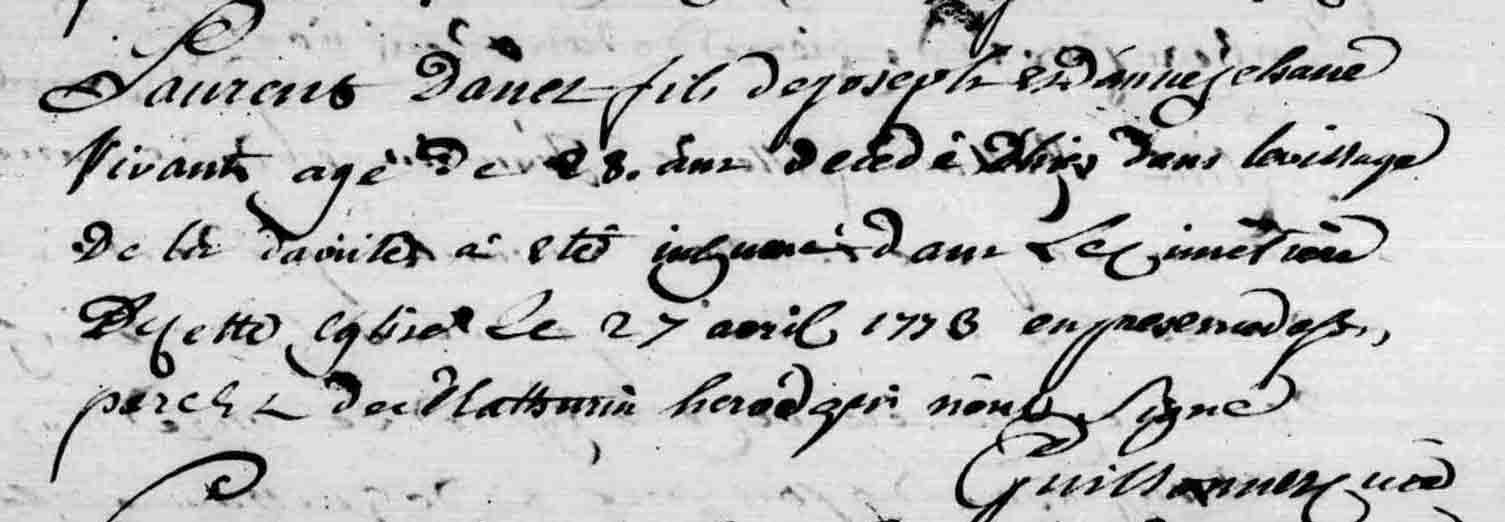 Laurens Danet fils de joseph et d'anne jehane
Vivants agé de 28. ans decedé d'hier dans le village
De la a eté inhumé dans le Cimetiere
De cette eglise le 27 avril 1778 en presence de
pere & de Mathurin herode qui nont Signe
Guillo